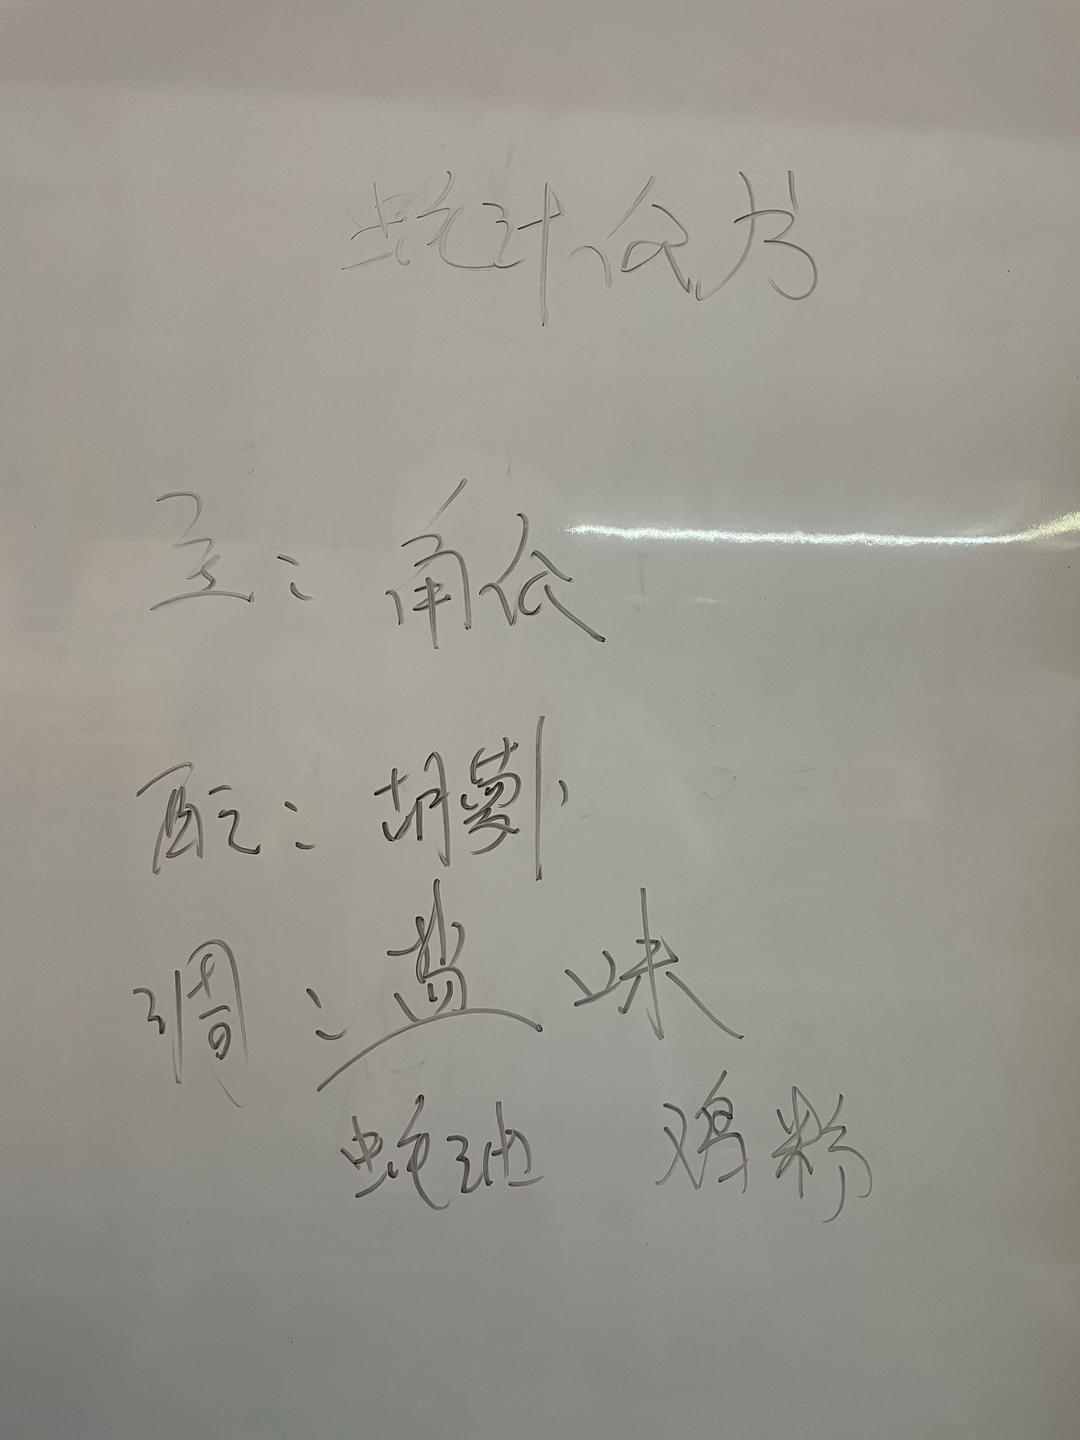 蚝汁瓜片
主：角瓜
配：胡萝卜
调：盐 味
蚝油 鸡粉